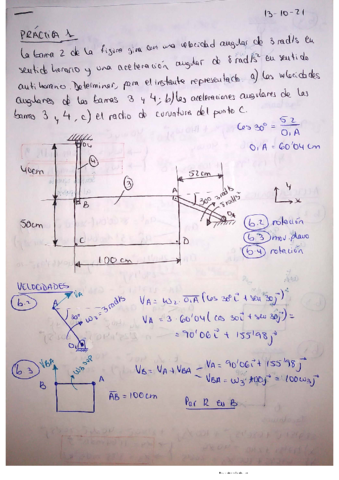 13-10-21
PRÁCTICA 1
La barra 2 de la figura gira con una velocidad angular de 3 rad/s en
sentido horario y una aceleración angular de 8 rad/s en sentido
antihorario. Determinar, para el instante representado a) las velocidades
angulares de las barras 3 y 4, b) las aceleraciones angulares de las
barras 3 y 4, c) el radio de curvatura del punto C.
cos 30º = 52 / O₂A
O₂A = 60'04 cm
O4
40cm
4
3
B
A
52cm
30º
3 rad/s
8 rad/s
O2
y
x
50cm
C
D
100cm
b.2 rotación
b.3 mov. plano
b.4 rotación
VELOCIDADES
b.2
VA
A
30º
ω2 = 3 rad/s
O2
VA = ω2 · O2A (cos 30º i + sen 30º j)
VA = 3 · 60'04 (cos 30i + sen 30j) =
= 90'06 i + 155'98 j
b.3
VBA
ω3
B
A
AB = 100cm
VB = VA + VBA
VA = 90'06 i + 155'98 j
VBA = ω3 · 100 j = 100ω3 j
Por R en B